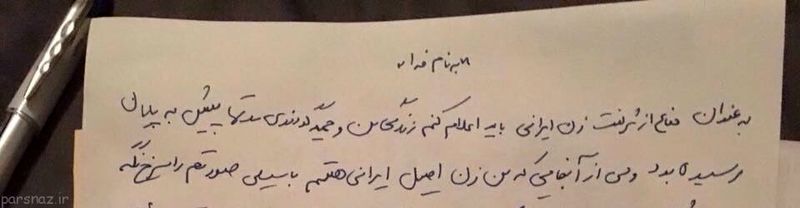 "به نام خدا"
به عنوان دفاع از شرافت زن ایرانی باید اعلام کنم زندگی من و حمید گودرزی مدتها پیش به پایان
رسیده بود ولی از آنجایی که من زن اصیل ایرانی هستم با سیلی صورتم را سرخ نگه
parsnaz.ir